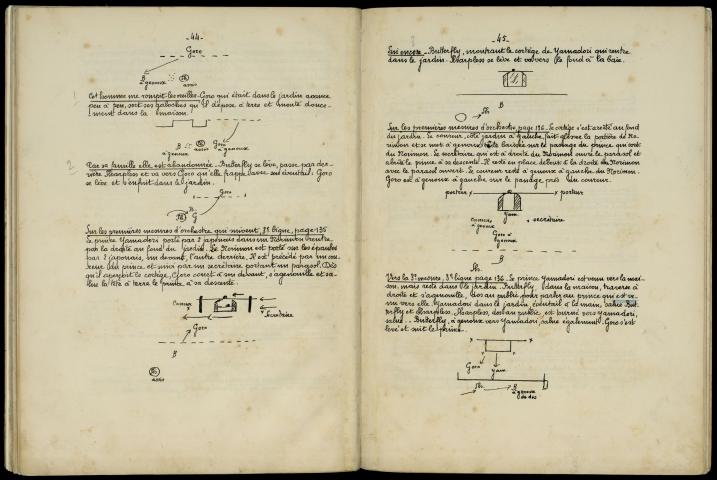 -44-
Goro
B
à genoux
Sh
assis
1
Cet homme me rompt les oreilles - Goro qui était dans le jardin avance
peu à peu, sort ses galoches qu'il dépose à terre et monte douce-
ment dans la maison.
B
à genoux
Sh
assis
Goro
à genoux
2
Car sa famille elle est abandonnée - Butterfly se lève, passe par der-
rière Sharpless et va vers Goro qu'elle frappe avec son éventail. Goro
se lève et s'enfuit dans le jardin.
Goro
Sh
B
G
Sur les premières mesures d'orchestre qui suivent, 3e ligne, page 135
Le prince Yamadori porté par 2 japonais dans un Norimon rentre
par la droite au fond du jardin. Le Norimon est porté sur les épaules
par 2 japonais, un devant, l'autre derrière. Il est précédé par un cou-
reur du prince et suivi par un secrétaire portant un parasol. Dès
qu'il aperçoit le cortège, Goro court au devant, s'agenouille et sa-
lue la tête à terre le prince à sa descente.
Coureur
Secrétaire
Goro
B
Sh
assis
-45-
Qui encore - Butterfly, montrant le cortège de Yamadori qui rentre
dans le jardin. Sharpless se lève et va vers le fond à la baie.
B
Sh.
Sur les premières mesures d'orchestre, page 136 - Le cortège s'est arrêté au fond
du jardin. Le coureur, côté jardin à gauche, fait glisser la portière du No-
rimon et se met à genoux, tête baissée sur le passage du prince qui sort
du Norimon. Le secrétaire qui est à droite du Norimon ouvre le parasol et
abrite le prince à sa descente. Il reste en place debout à la droite du Norimon
avec le parasol ouvert. Le coureur reste à genoux à gauche du Norimon.
Goro est à genoux à gauche sur le passage près du coureur.
porteur x
x porteur
Coureur
à genoux
Yam.
+ secrétaire
Goro à
genoux
B
Sh.
Vers la 3e mesure, 3e ligne page 136. Le prince Yamadori est venu vers la mai-
son, mais reste dans le jardin. Butterfly, dans la maison, traverse à
droite et s'agenouille, dos au public pour parler au prince qui est ve-
nu vers elle. Yamadori dans le jardin, éventail à la main, salue But-
terfly et Sharpless. Sharpless, dos au public, est tourné vers Yamadori,
salue - Butterfly, à genoux vers Yamadori, salue également. Goro s'est
levé et suit le prince.
x
x
Goro
Yam.
Sh.
B
à genoux
de dos